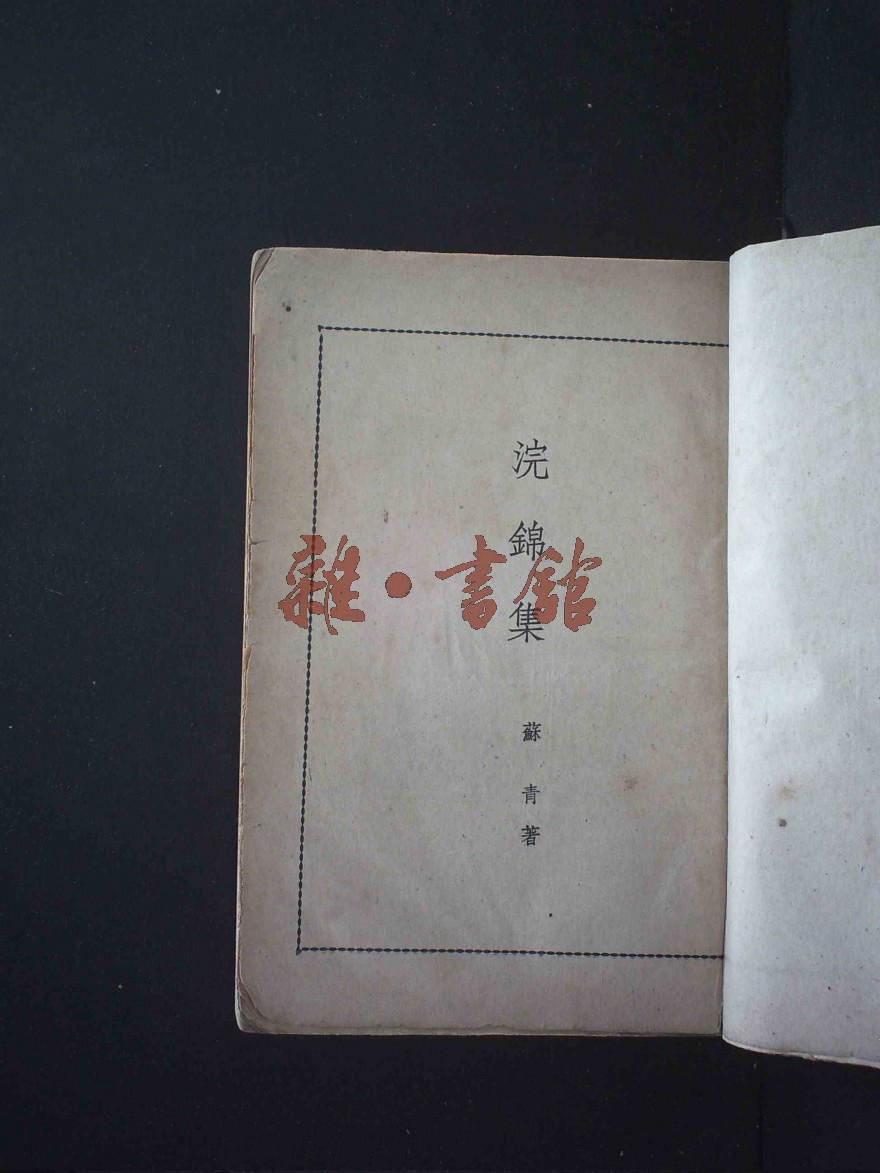 浣錦集
蘇青著
雜·書館